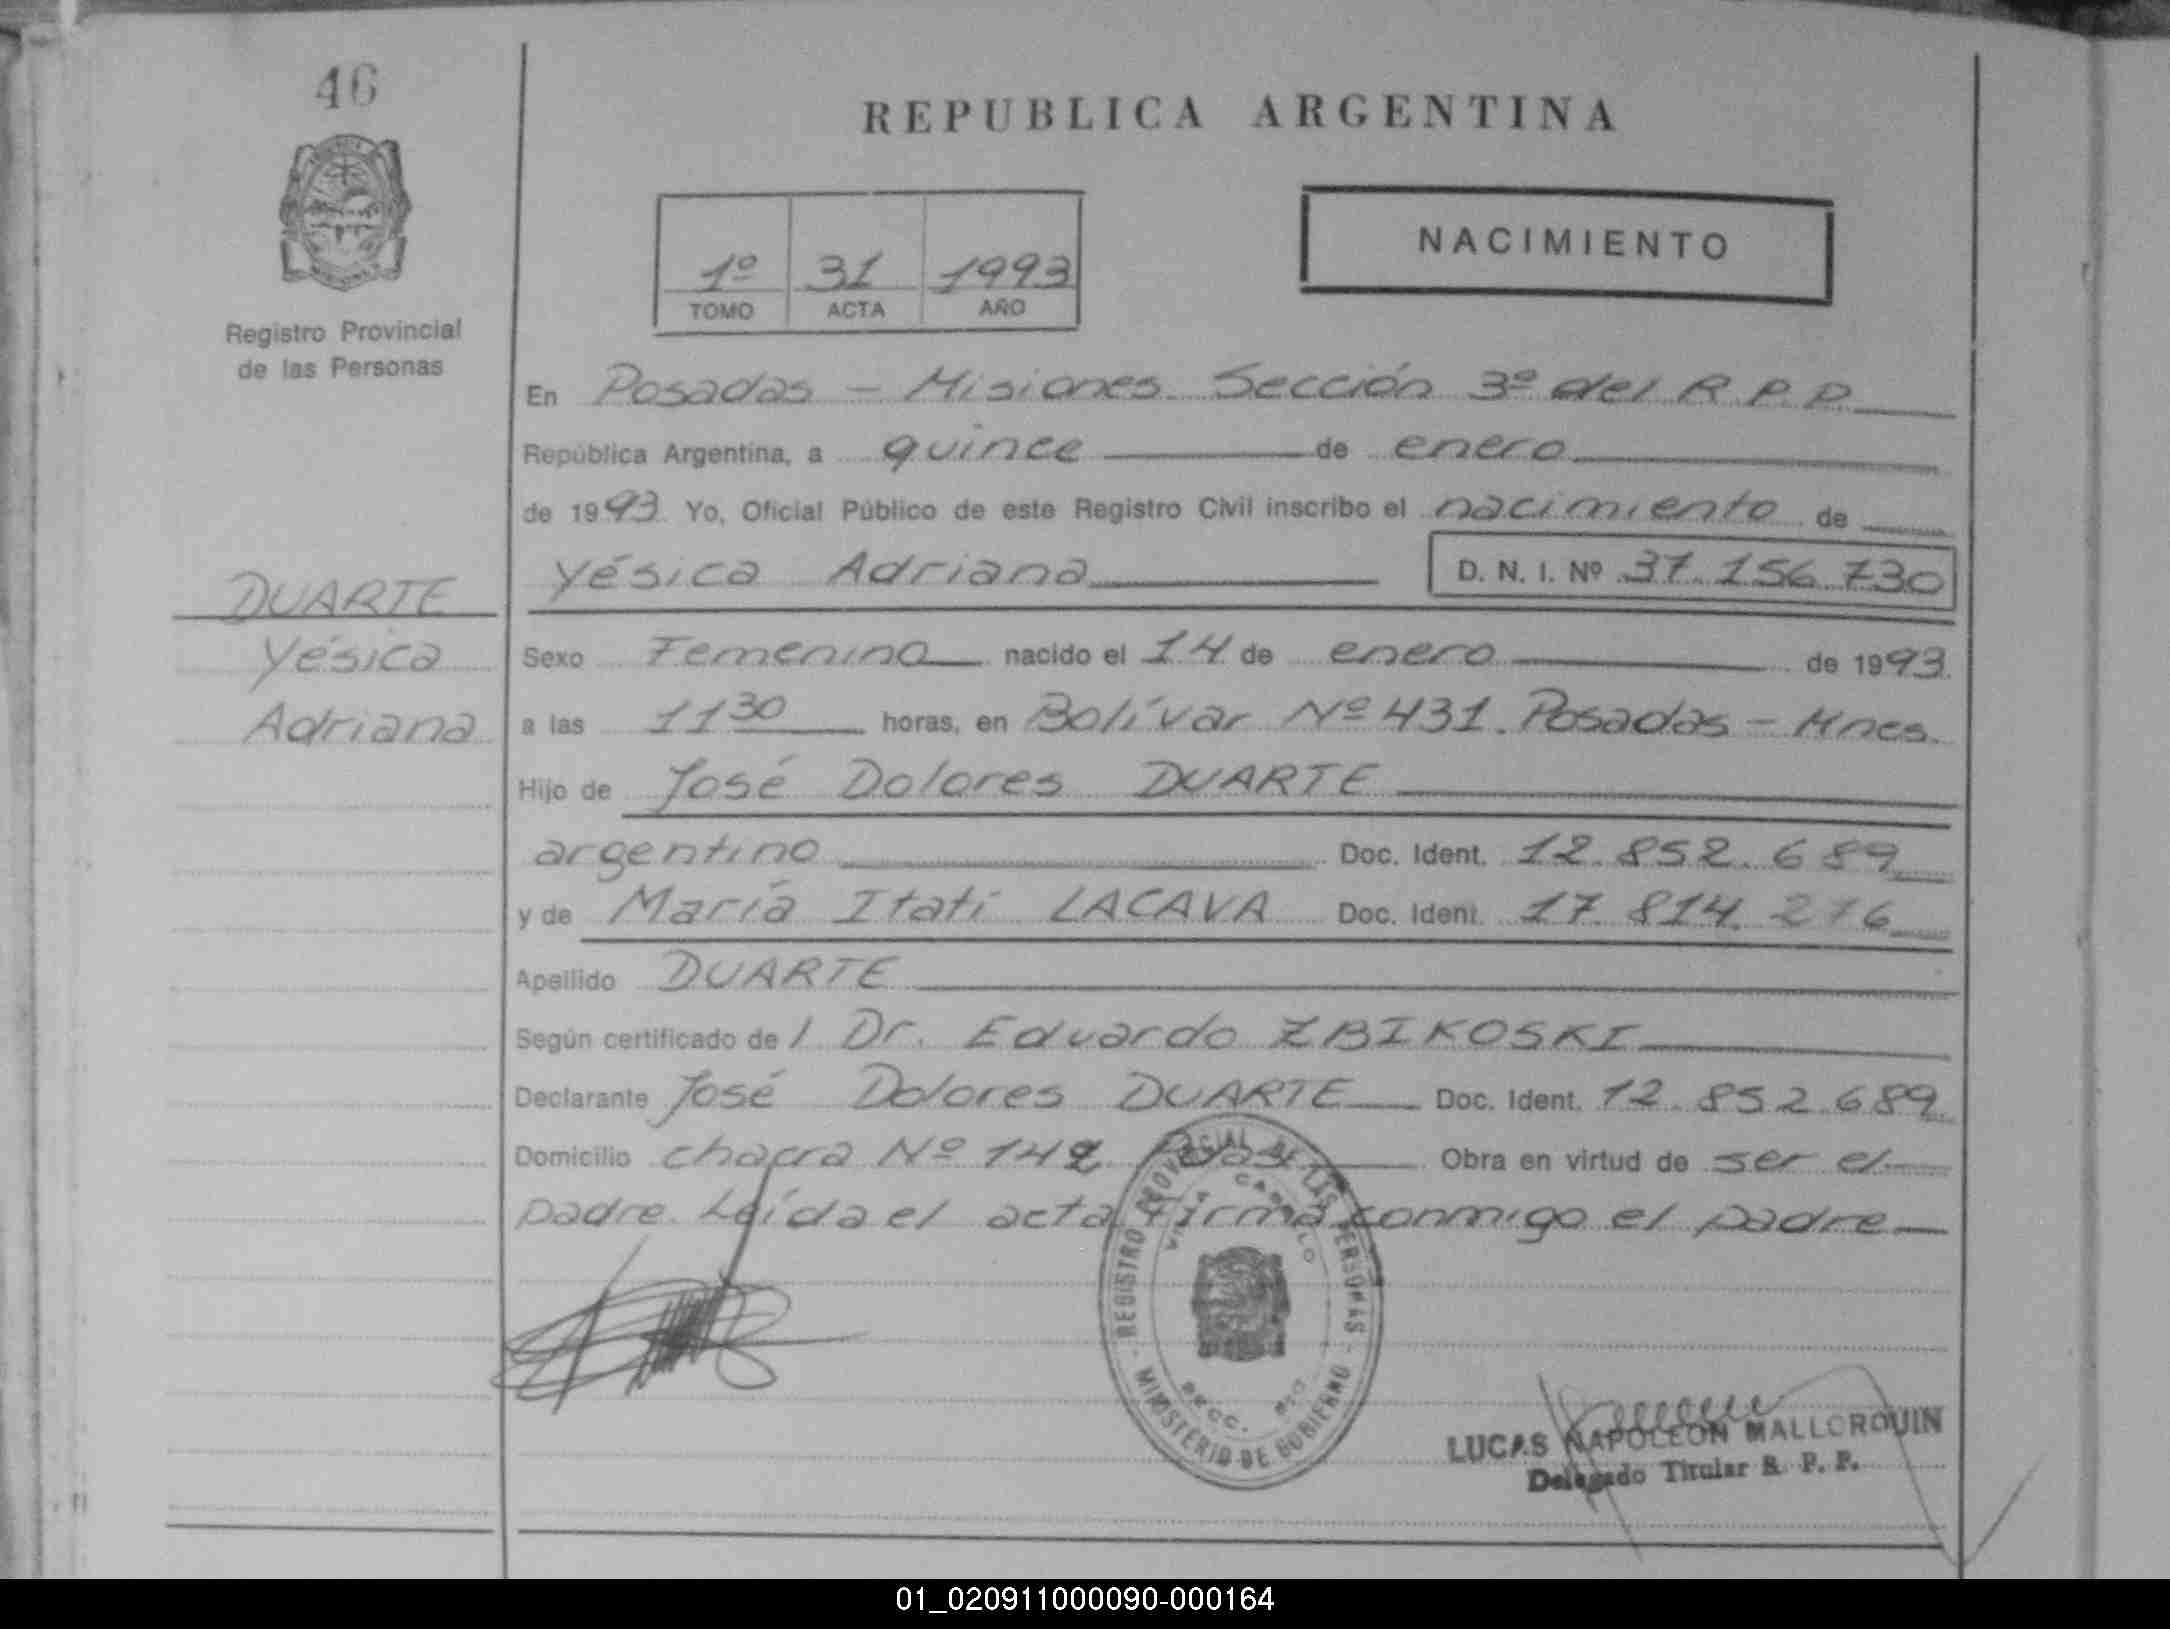 46
REPUBLICA ARGENTINA
NACIMIENTO
1º 31 1993
TOMO ACTA AÑO
Registro Provincial
de las Personas
En Posadas - Misiones. Sección 3º del R.P.P.
República Argentina, a quince de enero
de 1993. Yo, Oficial Público de este Registro Civil inscribo el nacimiento de
Yésica Adriana D. N. I. Nº 37.156.730
DUARTE
Yésica
Adriana
Sexo Femenino nacido el 14 de enero de 1993.
a las 11 30 horas, en Bolívar Nº 431. Posadas - Mnes.
Hijo de José Dolores DUARTE
argentino Doc. Ident. 12.852.689
y de María Itatí LACAVA Doc. Ident. 17.814.276
Apellido DUARTE
Según certificado de l Dr. Eduardo ZBIKOSKI
Declarante José Dolores DUARTE Doc. Ident. 12.852.689
Domicilio chacra Nº 142 Pdas. Obra en virtud de ser el
padre. Leída el acta firma conmigo el padre
REGISTRO PROVINCIAL DE LAS PERSONAS
MINISTERIO DE GOBIERNO
LUCAS NAPOLEON MALLORQUIN
Delegado Titular R. P. P.
01_020911000090-000164